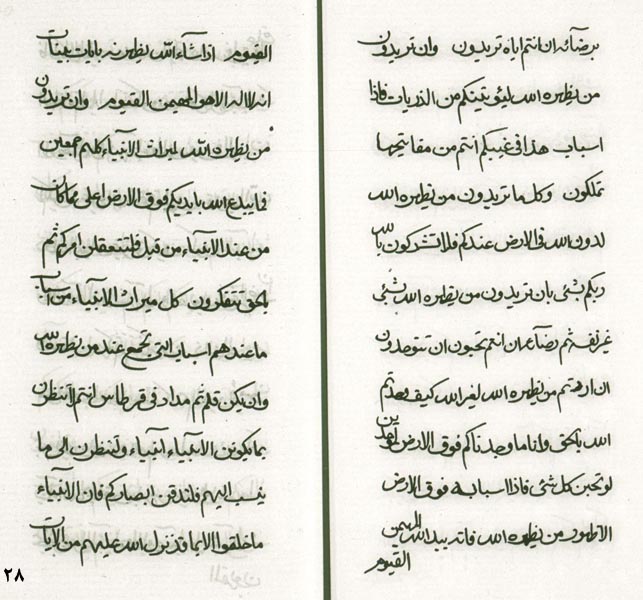 برضآئه ان انتم اياه تريدون وان تريدون
من يظهره الله ليؤتينكم من الذريات فاذا
اسباب هذا في غيبكم انتم من مفاتيحها
تملكون وكل ما تريدون من يظهره الله
لدون الله في الارض عندكم فلا تشركون بالله
ربكم بشئ بان تريدون من يظهره الله بشئ
غير نفسه ثم رضآئه ان انتم تحبون ان تتوحدون
ان اردتم من يظهره الله لغير الله كيف بعدتم
الله بالحق وانا ما وجدناكم فوق الارض
لو تحبن كل شئ فاذا اسبابه فوق الارض
الا تطهرن من يظهره الله فانه يريد الله المهيمن
القيوم
القيوم اذا شآء الله يظهرنه بايات بينات
انه لا اله الا هو المهيمن القيوم وان تريدون
من يظهره الله لميراث الانبيآء كلهم اجمعين
فما يبدع الله بايديكم فوق الارض اعلى مما كان
من عند الانبيآء من قبل فلتتعقلن امركم ثم
بالحق تتفكرون كل ميراث الانبيآء من اسباب
ما عندهم اسباب التي تجمع عند من يظهره الله
وان يكن قلم ثم مداد في قرطاس انتم لا تنظرن
بما يكونن الانبيآء انبيآء ولتنظرن الى ما
ينسب اليهم فلتدقن ابصاركم فان الانبيآء
ما خلقوا الا بما قد نزل الله عليهم من الايات
٢٨